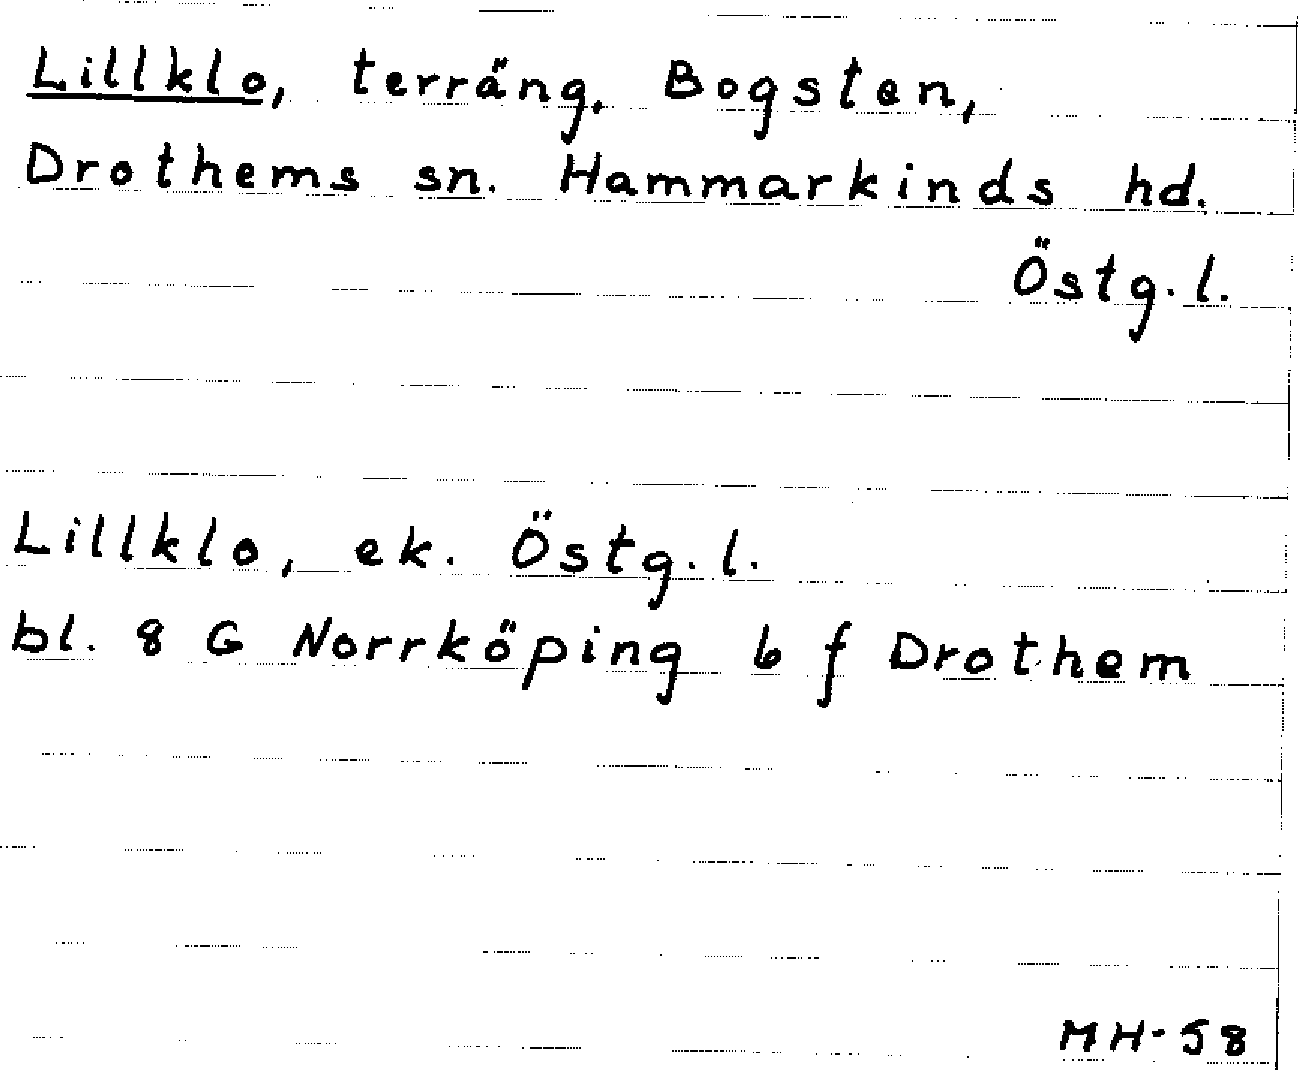 Lillklo, terräng, Bogsten,
Drothems sn. Hammarkinds hd.
Östg.l.
Lillklo, ek. Östg.l.
bl. 8 G Norrköping 6 f Drothem
MH-58